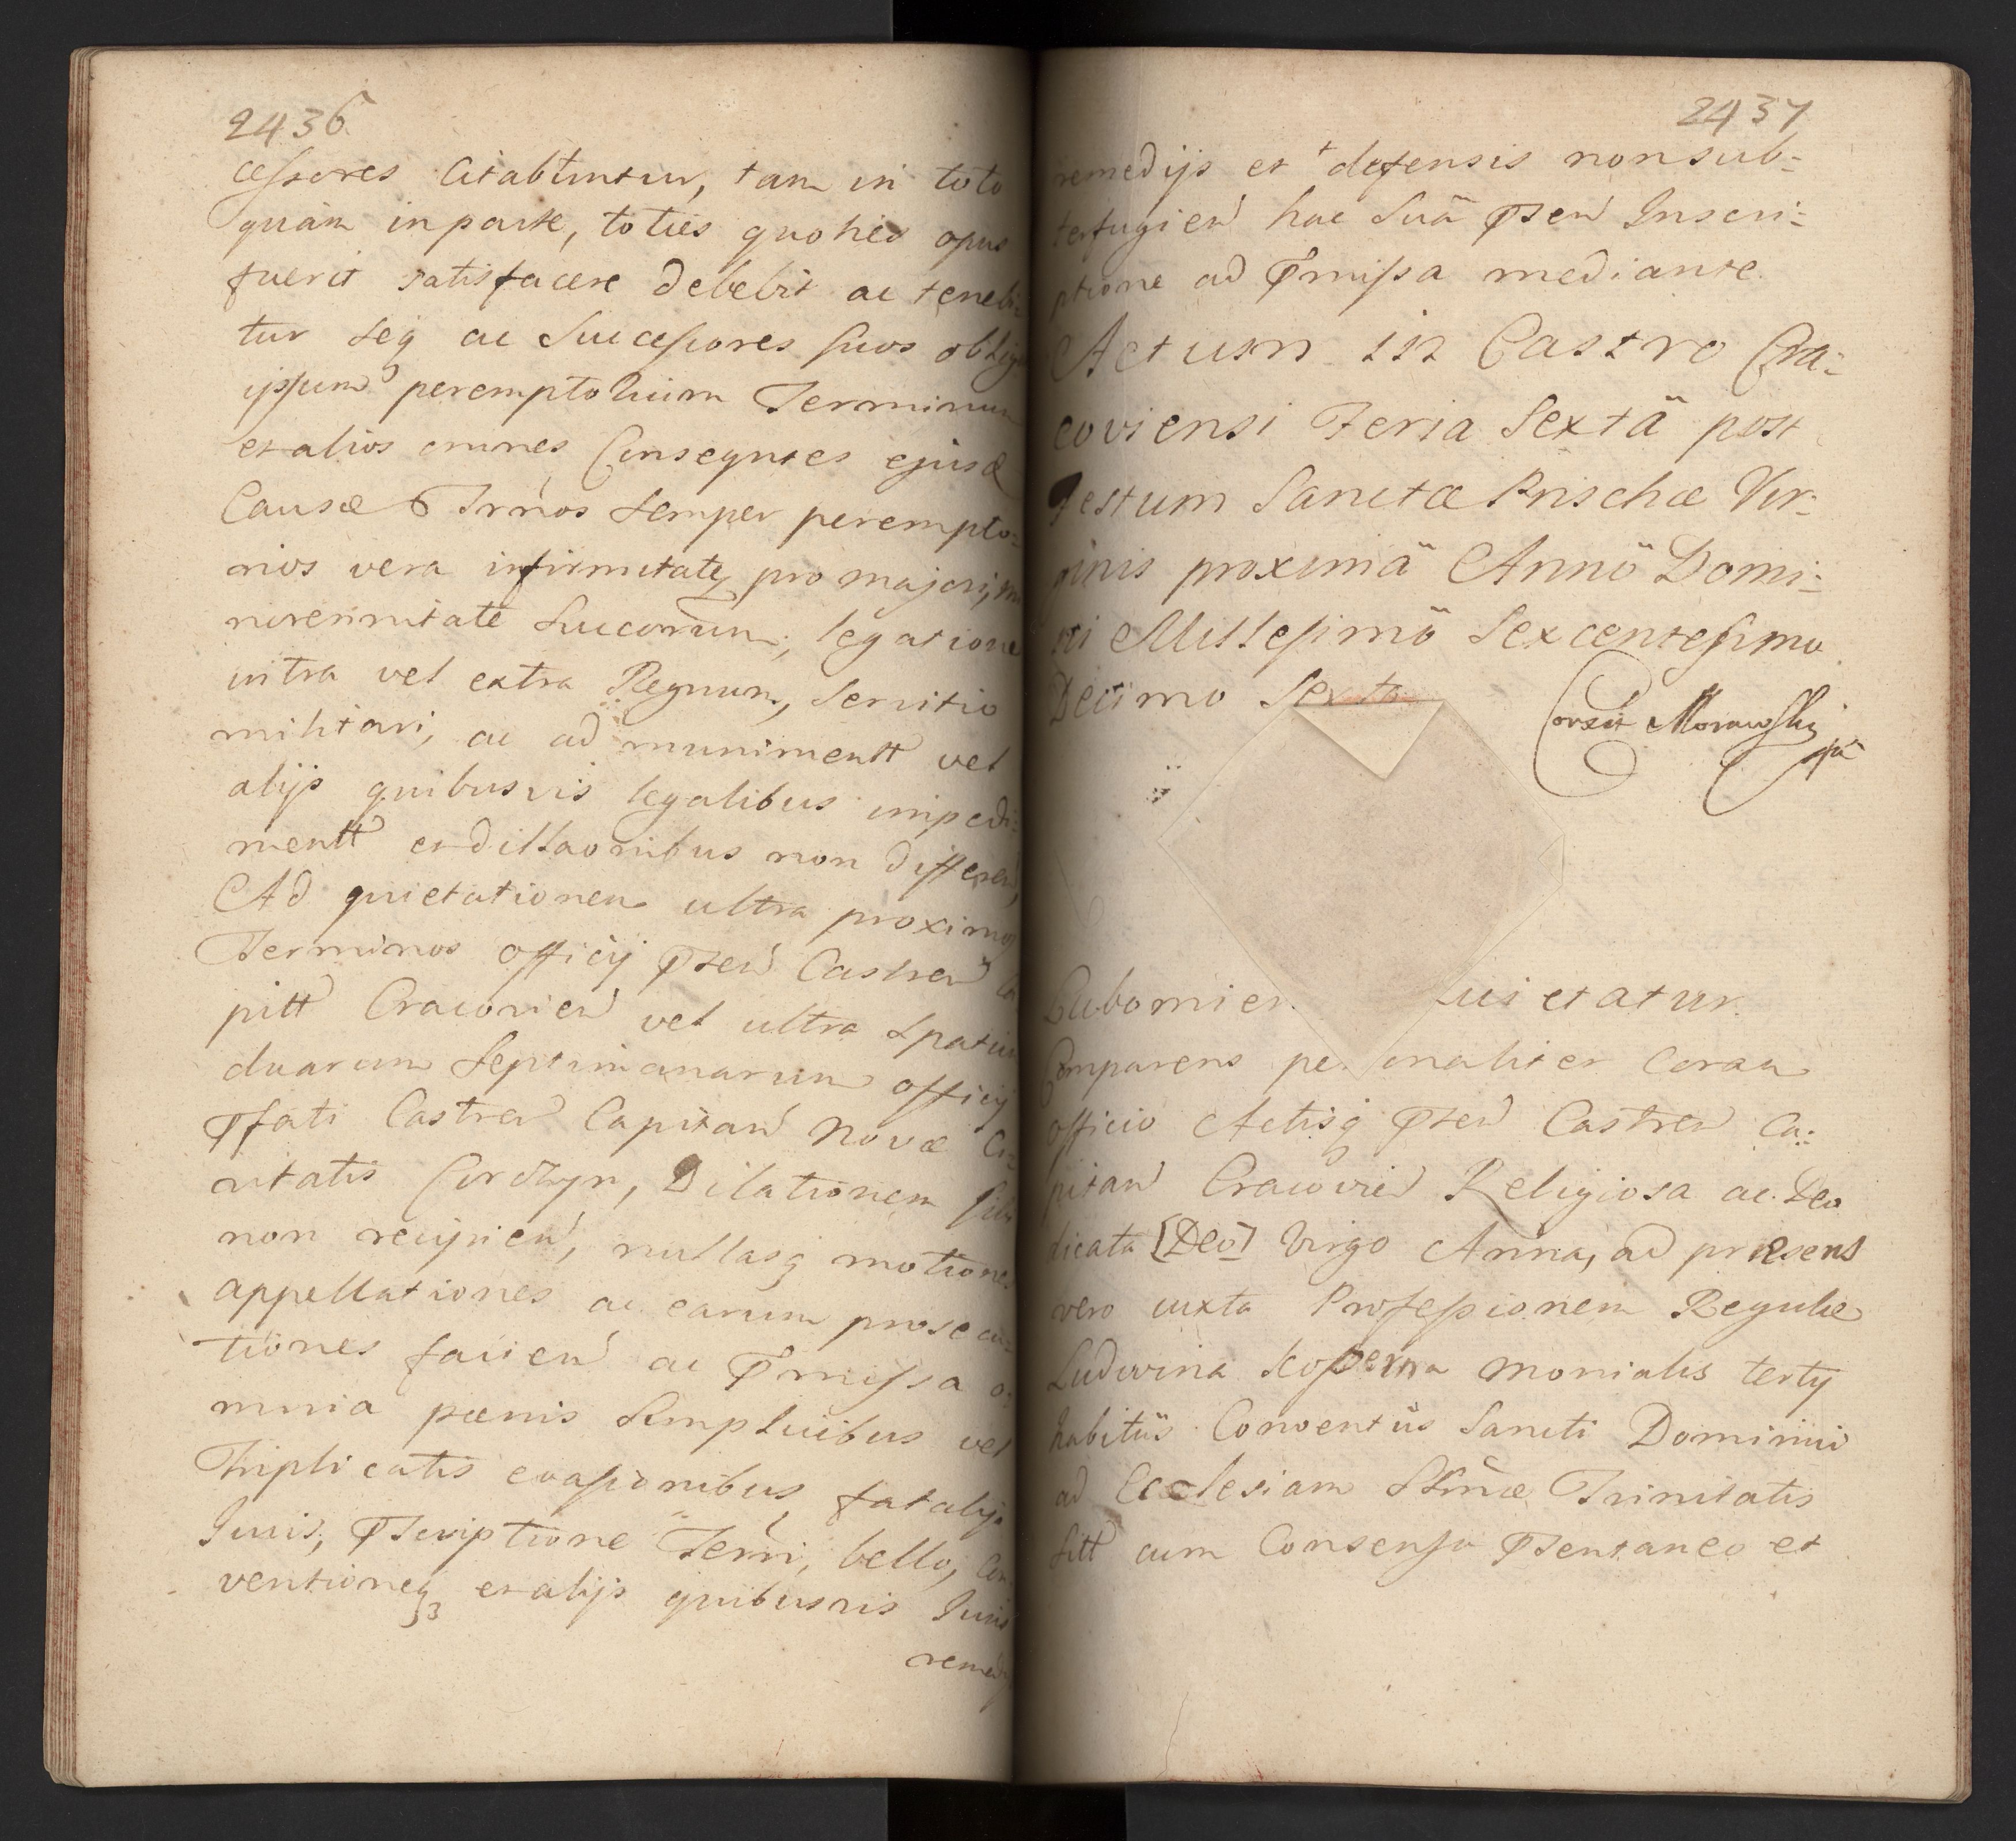 2436
cessores Citabuntur, tam in toto
quàm in parte, toties quoties opus
fuerit satisfacere debebit ac tenebi=
tur seq ac Successores suos oblig
ipsum peremptorium Terminum
et alios omnes Consequtes ejusd
Causæ Trnos semper perempto=
rios vera infirmitate pro majori,
norennitate Succorum, legatione
intra vel extra Regnum, Servitio
militari, ac ad munimentt vel
alijs quibusvis legalibus impedi=
mentt et dillaonibus non differen,
Ad quietationem ultra proximos
Terminos officij Pten Castren Ca
pitt Cracovien vel ultra spatiu
duarum Septimanarum officij
Pfati Castren Capitan Novæ Ci=
vitatis Corczyn, Dilationem sibi
non recipien, nullasq motiones
appellationes ac earum prosecu=
tiones facien ac Pmissa o=
mnia pœnis simplicibus vel
Triplicatis evasionibus, fatalijs
Juris, Pscriptione Terri, bello, Con
ventioneq et alijs quibusvis Juris
remedijs
2437
remedijs et defensis non sub=
terfugien hac Suâ Pten Inscri=
ptione ad Pmissa mediante.
Actum in Castro Cra=
coviensi Feria Sextâ post
Festum Sanctæ Prischæ Vir=
ginis proximâ Annô Domi=
ni Millesimô Sexcentesimo
Decimo Sexto
Corxit Morawski
mpa
Lubomier uietatur.
Comparens pe onaliter Coram
officio Actisq Pten Castren Ca=
pitan Cracovien Religiosa ac Deo
dicata [Deo] Virgo Anna, ad præsens
vero iuxta Professionem Regulæ
Ludovina Monialis tertij
habitûs Conventûs Sancti Dominici
ad Ecclesiam SSmæ Trinitatis
sitt cum Consensu Psentaneo et